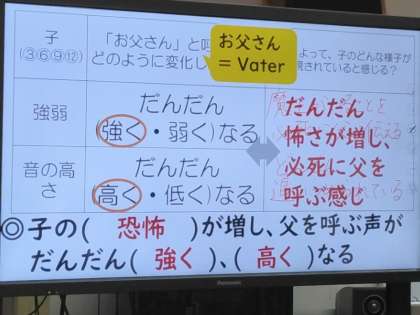 子
(③⑥⑨⑫)
「お父さん」と呼
どのように変化し
お父さん
= Vater
よって、子のどんな様子が
現されていると感じる?
強弱
だんだん
(強く・弱く)なる
だんだん
怖さが増し、
必死に父を
呼ぶ感じ
音の高
さ
だんだん
(高く・低く)なる
◎子の( 恐怖 )が増し、父を呼ぶ声が
だんだん( 強く )、( 高く )なる
Panasonic